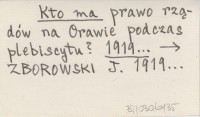 Kto ma prawo rzą-
dów na Orawie podczas
plebiscytu? 1919... →
ZBOROWSKI J. 1919...